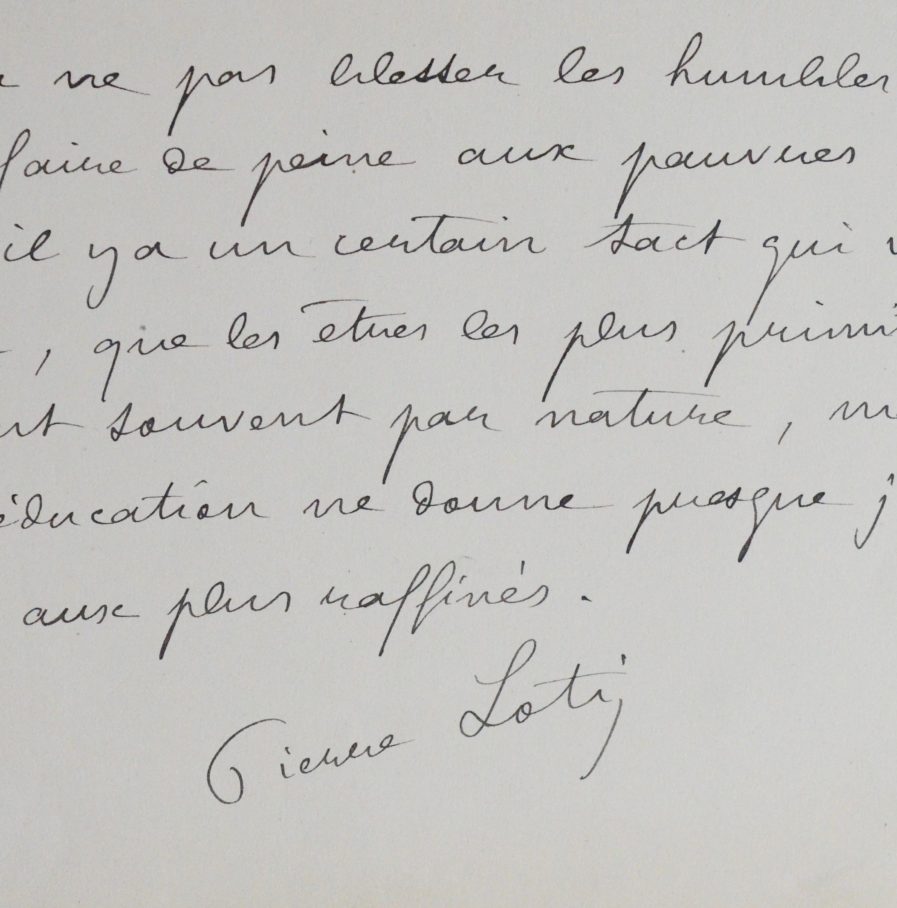 ne pas blesser les humbles
faire de peine aux pauvres
il y a un certain tact qui
, que les êtres les plus primi
nt souvent par nature, m
éducation ne donne presque j
aux plus raffinés.
Pierre Loti